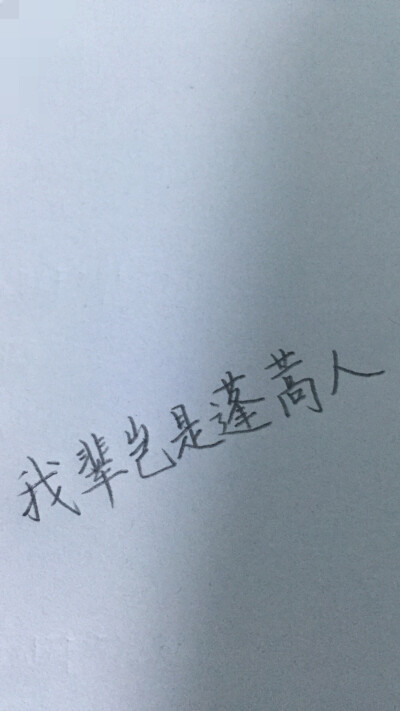 我辈岂是蓬蒿人